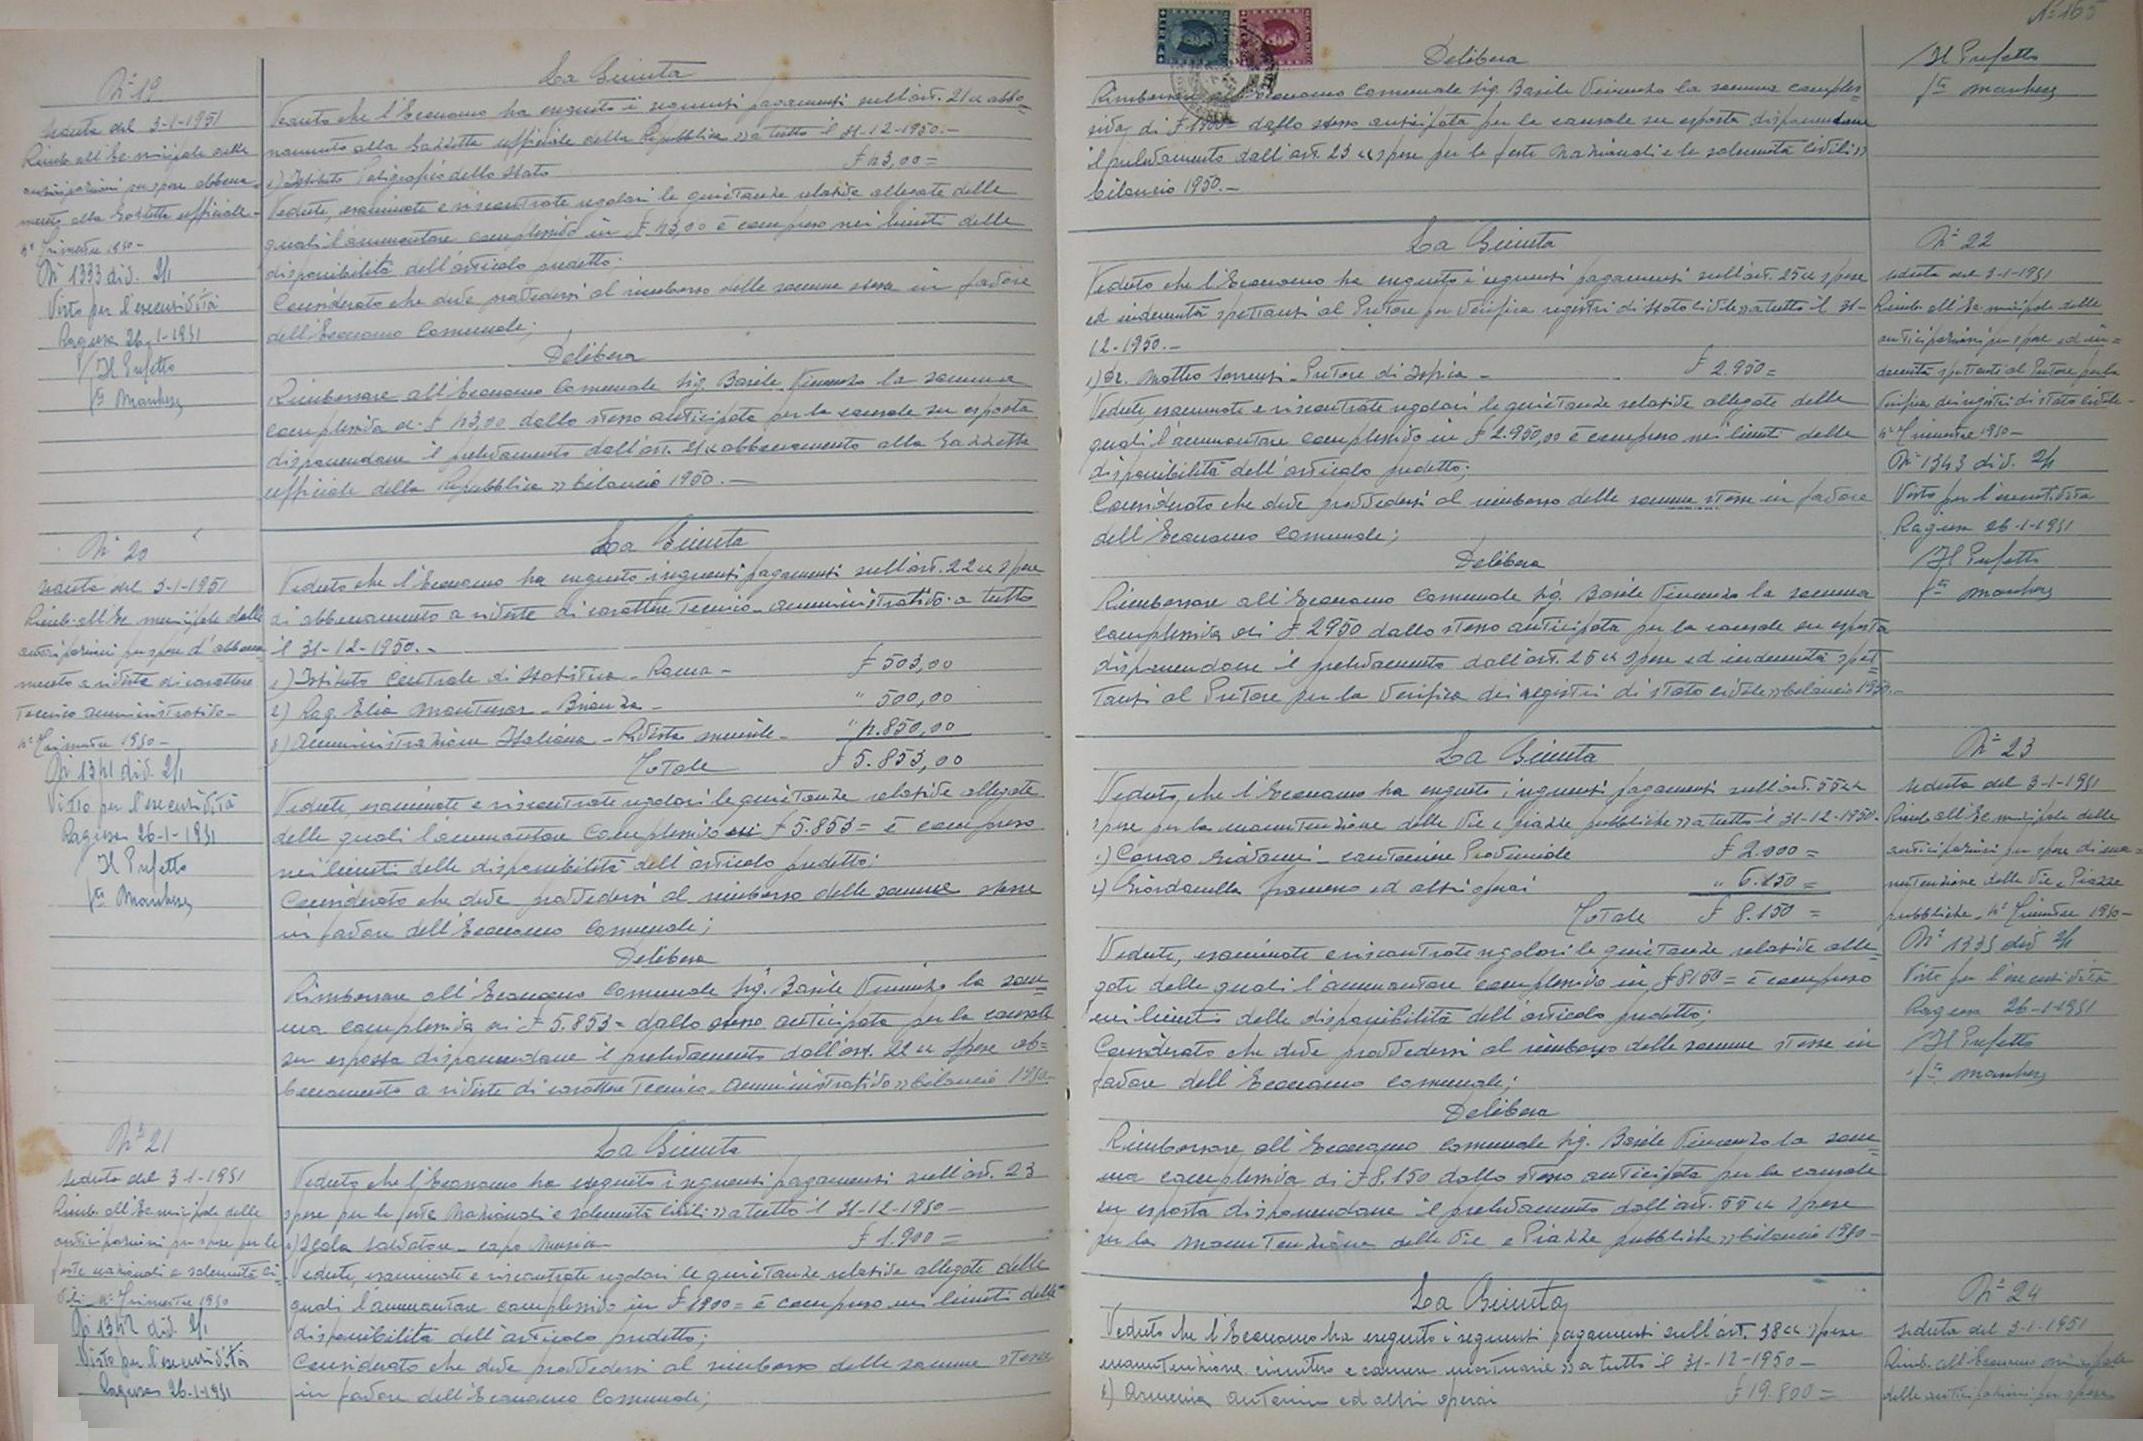 Nº 19
seduta del 3-1-1951
Rimb. all'Ec. municipale delle
anticipazioni per spese abbona-
mento alla Gazzetta ufficiale -
4º Trimestre 1950 -
Nº 1333 div. 2/1
Visto per l'esecutività
Ragusa 26-1-1951
Il Prefetto
La Giunta
Veduto che l'Economo ha eseguito i seguenti pagamenti sull'art. 21 « abbo=
namento alla Gazzetta ufficiale della Repubblica » a tutto il 31-12-1950.-
1) Istituto Poligrafico dello Stato £ 43,00 =
Vedute, esaminate e riscontrate regolari le quietanze relative allegate delle
quali l'ammontare complessivo in £ 43,00 è compreso nei limiti delle
disponibilità dell'articolo predetto;
Considerato che deve provvedersi al rimborso delle somme stesse in favore
dell'Economo Comunale;
Delibera
Rimborsare all'Economo Comunale Sig. Basile Vincenzo la somma
complessiva di £ 43,00 dallo stesso anticipata per la causale su esposta
disponendone il prelevamento dall'art. 21 « abbonamento alla Gazzetta
ufficiale della Repubblica » bilancio 1950.-
Nº 20
seduta del 3-1-1951
Rimb. all'Ec. municipale delle
anticipazioni per spese d'abbona-
mento a riviste di carattere
Tecnico amministrativo -
4º Trimestre 1950 -
Nº 1341 div. 2/1
Visto per l'esecutività
Ragusa 26-1-1951
Il Prefetto
La Giunta
Veduto che l'Economo ha eseguito i seguenti pagamenti sull'art. 22 « spese
di abbonamento a riviste di carattere Tecnico-amministrativo a tutto
il 31-12-1950.-
1) Istituto Centrale di Statistica - Roma - £ 503,00
2) Rag. Elia - " 500,00
3) Amministrazione Italiana - Rivista mensile - " 4.850,00
Totale £ 5.853,00
Vedute, esaminate e riscontrate regolari le quietanze relative allegate
delle quali l'ammontare complessivo in £ 5.853 = è compreso
nei limiti delle disponibilità dell'articolo predetto;
Considerato che deve provvedersi al rimborso delle somme stesse
in favore dell'Economo Comunale;
Delibera
Rimborsare all'Economo Comunale Sig. Basile Vincenzo la som=
ma complessiva di £ 5.853 = dallo stesso anticipata per la causale
su esposta disponendone il prelevamento dall'art. 22 « spese ab=
bonamento a riviste di carattere Tecnico-Amministrativo » bilancio 1950-
Nº 21
seduta del 3-1-1951
Rimb. all'Ec. municipale delle
anticipazioni per spese per le
feste nazionali e solennità ci-
vili - 4º Trimestre 1950
Nº 1342 div. 2/1
Visto per l'esecutività
Ragusa 26-1-1951
La Giunta
Veduto che l'Economo ha eseguito i seguenti pagamenti sull'art. 23
spese per le feste Nazionali e solennità civili » a tutto il 31-12-1950 -
1) Scala Salvatore - capo Musica £ 1.900 =
Vedute, esaminate e riscontrate regolari le quietanze relative allegate delle
quali l'ammontare complessivo in £ 1900 = è compreso nei limiti delle
disponibilità dell'articolo predetto;
Considerato che deve provvedersi al rimborso delle somme stesse
in favore dell'Economo Comunale;
Nº 165
Delibera
Rimborsare all'Economo Comunale Sig. Basile Vincenzo la somma comples=
siva di £ 1900 = dallo stesso anticipata per la causale su esposta disponendone
il prelevamento dall'art. 23 « spese per le feste Nazionali e le solennità civili »
bilancio 1950.-
Il Prefetto
La Giunta
Veduto che l'Economo ha eseguito i seguenti pagamenti sull'art. 25 « spese
ed indennità spettanti al Pretore per verifica registri di stato civile » a tutto il 31-
12-1950.-
1) Dr. Matteo Sorrenti - Pretore di Ispica - £ 2.950 =
Vedute, esaminate e riscontrate regolari le quietanze relative allegate delle
quali l'ammontare complessivo in £ 2.950,00 è compreso nei limiti delle
disponibilità dell'articolo predetto;
Considerato che deve provvedersi al rimborso delle somme stesse in favore
dell'Economo Comunale;
Delibera
Rimborsare all'Economo Comunale Sig. Basile Vincenzo la somma
complessiva di £ 2950 dallo stesso anticipata per la causale su esposta
disponendone il prelevamento dall'art. 25 « spese ed indennità spet=
tanti al Pretore per la verifica dei registri di stato civile » bilancio 1950.-
Nº 22
seduta del 3-1-1951
Rimb. all'Ec. municipale delle
anticipazioni per spese ed in=
dennità spettanti al Pretore per la
verifica dei registri di stato civile -
4º Trimestre 1950 -
Nº 1343 div. 2/1
Visto per l'esecutività
Ragusa 26-1-1951
Il Prefetto
La Giunta
Veduto che l'Economo ha eseguito i seguenti pagamenti sull'art. 55 «
spese per la manutenzione delle vie e piazze pubbliche » a tutto il 31-12-1950-
1) Giovanni - cantoniere Provinciale £ 2.000 =
2) Giordanella Francesco ed altri operai " 6.150 =
Totale £ 8.150 =
Vedute, esaminate e riscontrate regolari le quietanze relative alle=
gate delle quali l'ammontare complessivo in £ 8150 = è compreso
nei limiti delle disponibilità dell'articolo predetto;
Considerato che deve provvedersi al rimborso delle somme stesse in
favore dell'Economo Comunale;
Delibera
Rimborsare all'Economo Comunale Sig. Basile Vincenzo la som=
ma complessiva di £ 8.150 dallo stesso anticipata per la causale
su esposta disponendone il prelevamento dall'art. 55 « spese
per la manutenzione delle vie e Piazze pubbliche » bilancio 1950 -
Nº 23
seduta del 3-1-1951
Rimb. all'Ec. municipale delle
anticipazioni per spese di ma=
nutenzione delle Vie e Piazze
pubbliche - 4º Trimestre 1950 -
Nº 1335 div 2/1
Visto per l'esecutività
Ragusa 26-1-1951
Il Prefetto
La Giunta
Veduto che l'Economo ha eseguito i seguenti pagamenti sull'art. 38 « spese
manutenzione cimitero e camere mortuarie » a tutto il 31-12-1950 -
1) Armenia Antonino ed altri operai £ 19.800 =
Nº 24
seduta del 3-1-1951
Rimb. all'Economo municipale
delle anticipazioni per spese